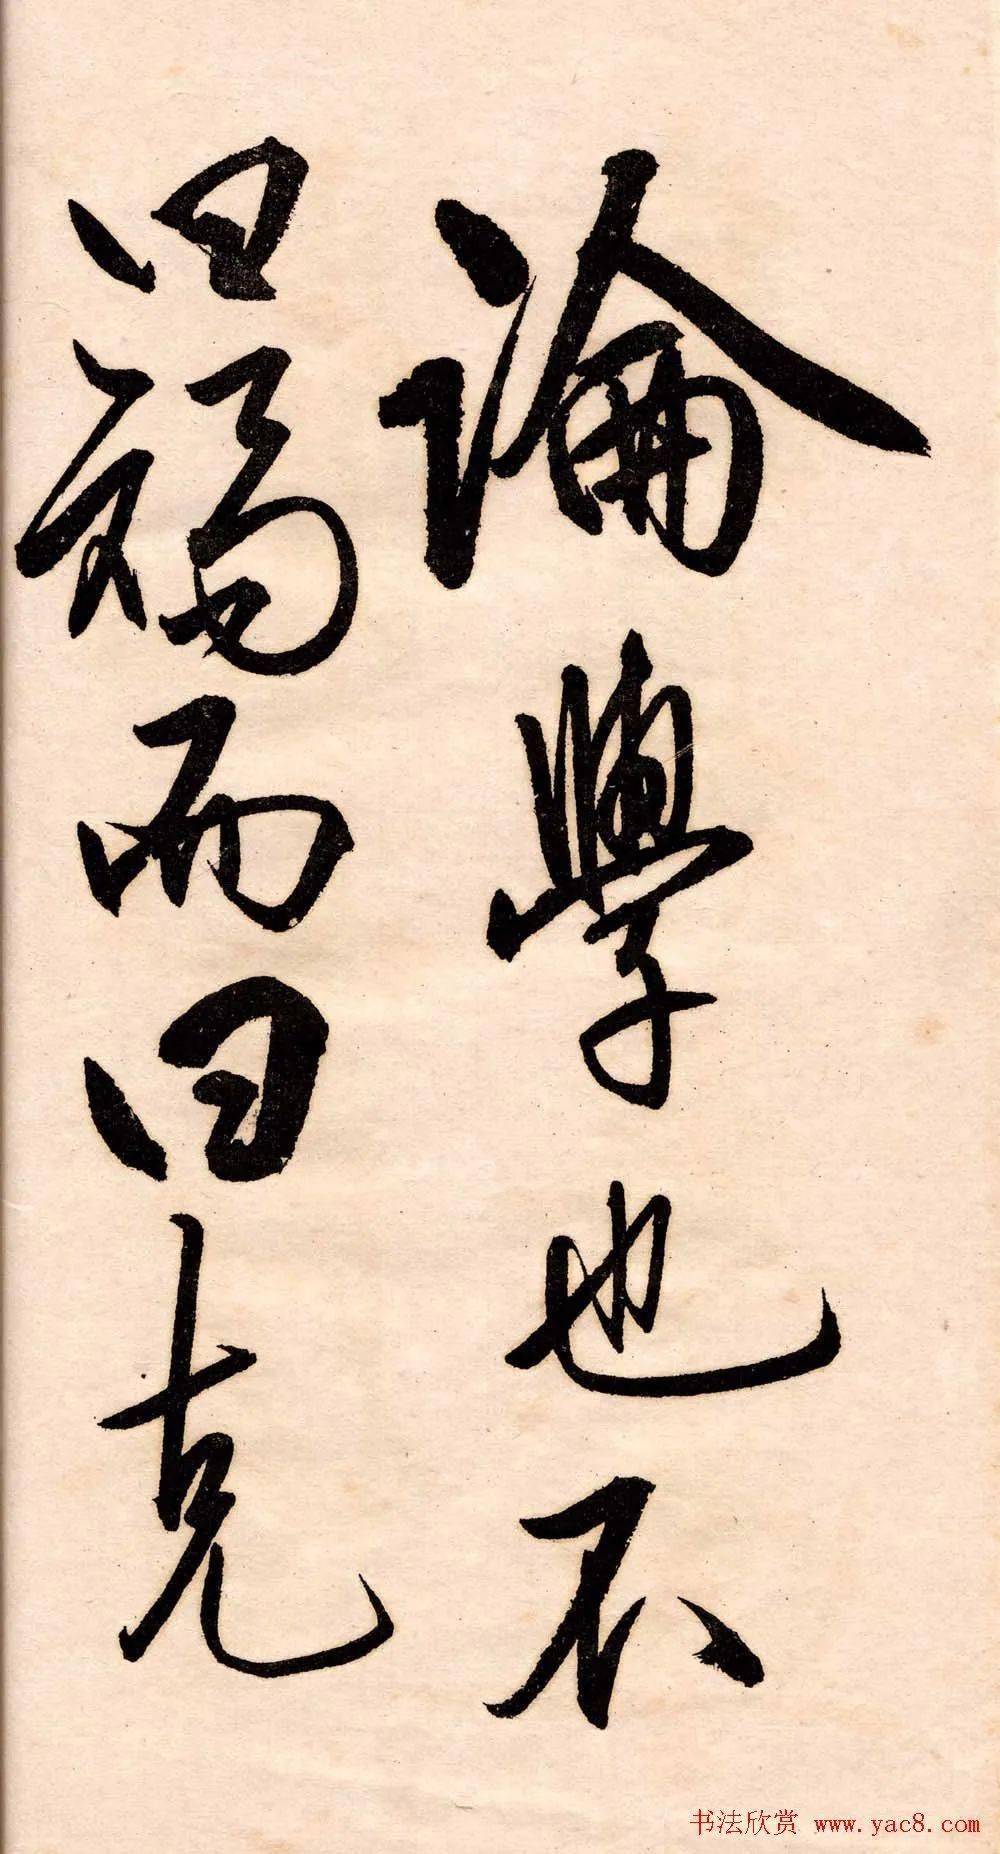 論學也不
曰而曰克
书法欣赏 www.yac8.com